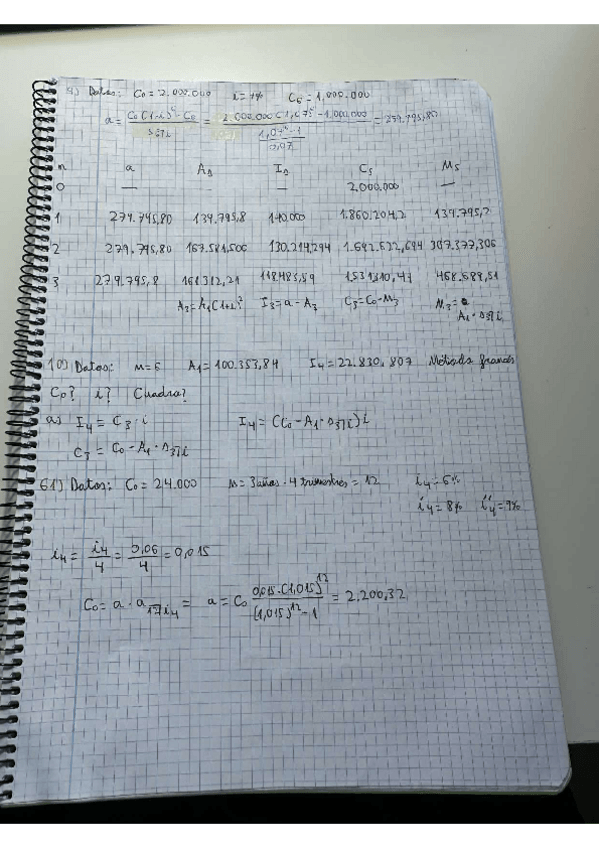 9) Datos: C₀ = 2.000.000 i = 7% C₅ = 1.000.000
a = C₀(1+i)⁵ - C₅ / S5┐i = 2.000.000 (1,07⁵ - 1.000.000 / 1,07⁵-1 / 0,07 = 279.795,80
n a As Is Cs Ms
0 — — — 2.000.000 —
1 279.795,80 139.795,8 140.000 1.860.204,2 139.795,8
2 279.795,80 130.214,294
3 279.795,8 118.483,59 468.689,51
A₃ = A₁(1+i)² I₃ = a - A₃ C₃ = C₀ - M₃ M₃ =
A₁ · s3┐i
10) Datos: n = 5 A₁ = 100.353,84 I₄ = 22.830,807 Método francés
C₀? i? Cuadro?
a) I₄ = C₃ · i I₄ = (C₀ - A₁ · s3┐i) i
C₃ = C₀ - A₁ · s3┐i
61) Datos: C₀ = 24.000 n = 3 años · 4 trimestres = 12 i₄ = 6%
i₄ = 8% i''₄ = 9%
i₄ = i₄/4 = 0,06/4 = 0,015
C₀ = a · a12┐i₄ = a = C₀ 0,015 · (1,015)¹² / (1,015)¹² - 1 = 2.200,32